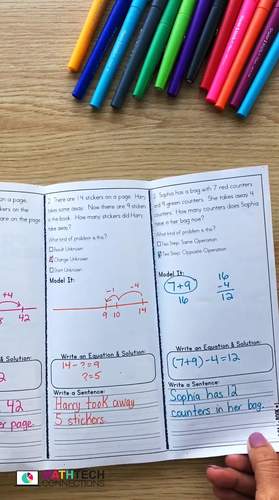 on a page.
kers on the
are on the page
+4
42
& Solution:
2
42
er page.
2. There are 14 stickers on a page. Harry
takes some away. Now there are 9 stickers
in the book. How many stickers did Harry
take away?
What kind of problem is this?
Result Unknown
Change Unknown
Start Unknown
Model It:
-1 -4
9 10 14
Write an Equation & Solution:
14 - ? = 9
? = 5
Write a Sentence:
Harry took away
5 stickers.
3. Sophia has a bag with 7 red counters
and 9 green counters. She takes away 4
counters. How many counters does Sophia
have in her bag now?
What kind of problem is this?
Two Step: Same Operation
Two Step: Opposite Operation
Model It:
7+9
16
16
-4
12
Write an Equation & Solution:
(7+9)-4=12
Write a Sentence:
Sophia has 12
counters in her bag.
MATHTECH
CONNECTIONS